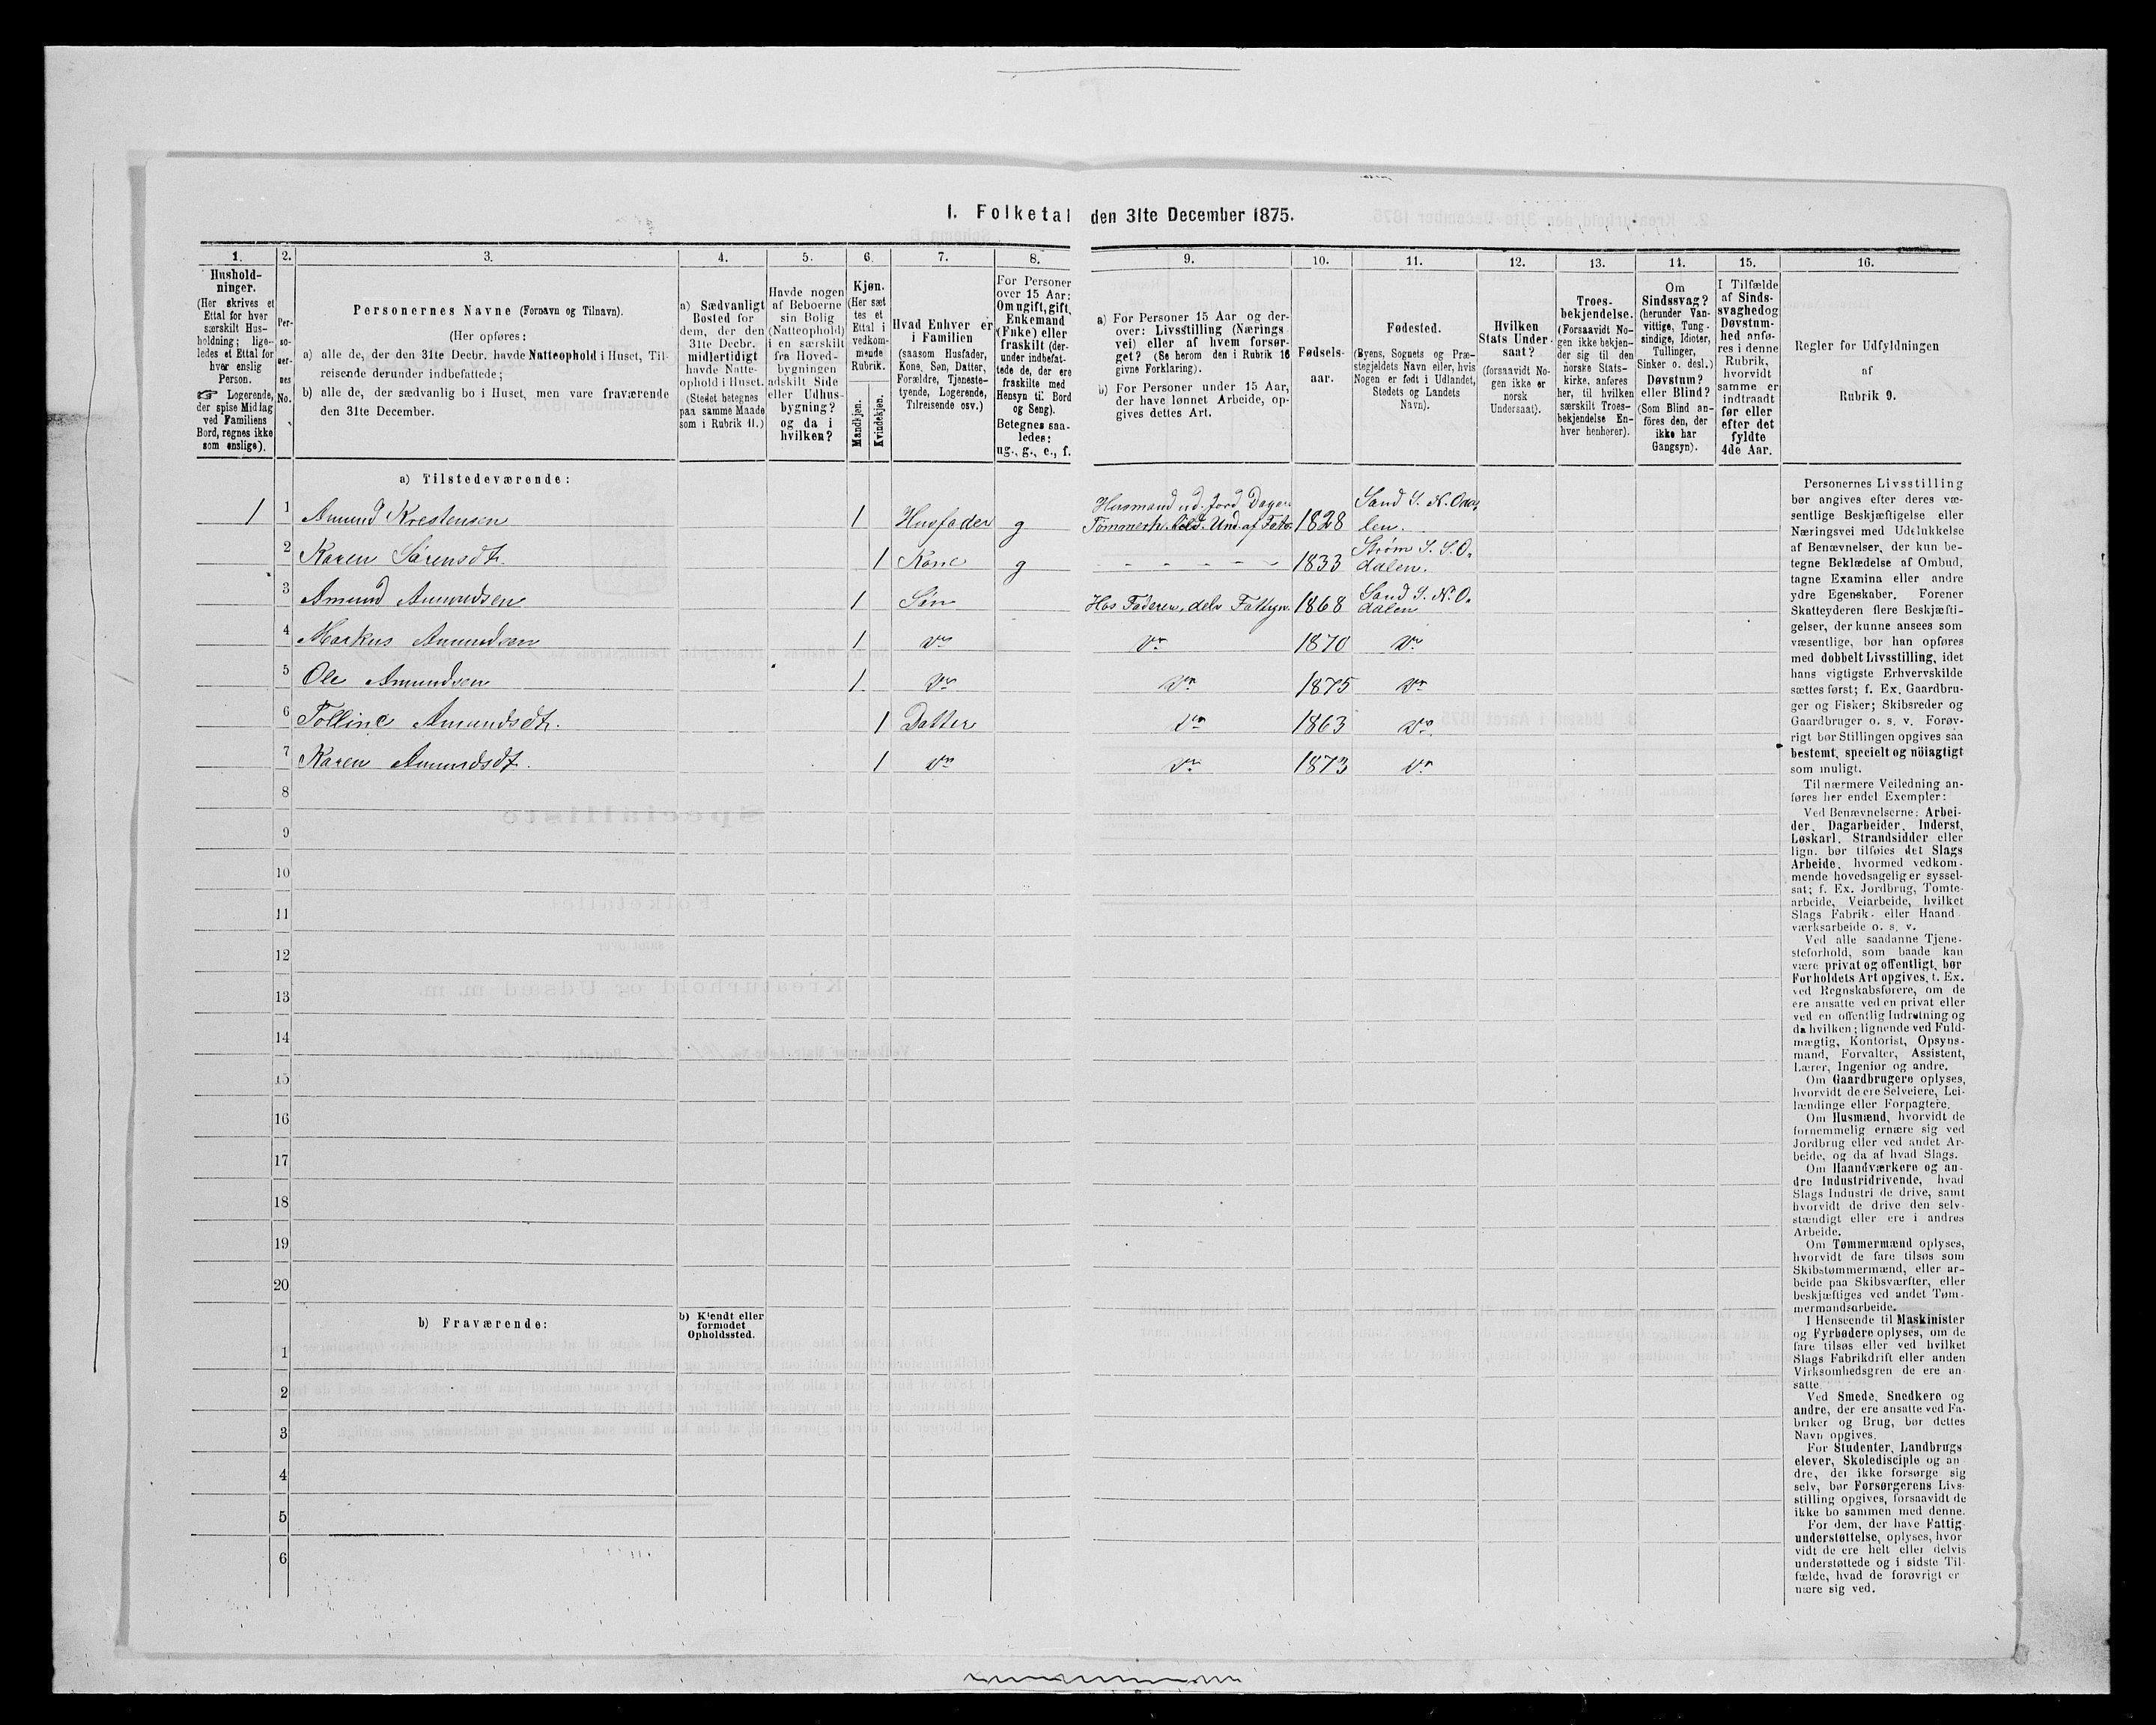 I. Folketal den 31te December 1875.
1.
Hushold-
ninger.
(Her skrives et
Ettal for hver
særskilt Hus-
holdning; lige-
ledes et Ettal for
hver enslig
Person.
☞ Logerende,
der spise Middag
ved Familiens
Bord, regnes ikke
som enslige).
2.
Per-
so-
ner-
nes
No.
3.
Personernes Navne (Fornavn og Tilnavn).
(Her opføres:
a) alle de, der den 31te Decbr. havde Natteophold i Huset, Til-
reisende derunder indbefattede;
b) alle de, der sædvanlig bo i Huset, men vare fraværende
den 31te December.
4.
a) Sædvanligt
Bosted for
dem, der den
31te Decbr.
midlertidigt
havde Natte-
ophold i Huset.
(Stedet betegnes
paa samme Maade
som i Rubrik 11.)
5.
Havde nogen
af Beboerne
sin Bolig
(Natteophold)
i en særskilt
fra Hoved-
bygningen
adskilt Side
eller Udhus-
bygning?
og da i
hvilken?
6.
Kjøn.
(Her sæt
tes et
Ettal i
vedkom-
mende
Rubrik.
Mandkjøn.
Kvindekjøn.
7.
Hvad Enhver er
i Familien
(saasom Husfader,
Kone, Søn, Datter,
Forældre, Tjeneste-
tyende, Logerende,
Tilreisende osv.)
8.
For Personer
over 15 Aar:
Om ugift, gift,
Enkemand
(Enke) eller
fraskilt (der-
under indbefat-
tede de, der ere
fraskilte med
Hensyn til Bord
og Seng).
Betegnes saa-
ledes:
ug., g., e., f.
9.
a) For Personer 15 Aar og der-
over: Livsstilling (Nærings
vei) eller af hvem forsør-
get? (Se herom den i Rubrik 16
givne Forklaring).
b) For Personer under 15 Aar,
der have lønnet Arbeide, op-
gives dettes Art.
10.
Fødsels-
aar.
11.
Fødested.
(Byens, Sognets og Præ-
stegjeldets Navn eller, hvis
Nogen er født i Udlandet,
Stedets og Landets
Navn).
12.
Hvilken
Stats Under-
saat?
(forsaavidt No-
gen ikke er
norsk
Undersaat).
13.
Troes-
bekjendelse.
(Forsaavidt No-
gen ikke bekjen-
der sig til den
norske Stats-
kirke, anføres
her, til hvilken
særskilt Troes-
bekjendelse En-
hver henhører).
14.
Om
Sindssvag?
(herunder Van-
vittige, Tung-
sindige, Idioter,
Tullinger,
Sinker o. desl.)
Døvstum?
eller Blind?
(Som Blind an-
føres den, der
ikke har
Gangsyn).
15.
I Tilfælde
af Sinds-
svaghed og
Døvstum-
hed anfø-
res i denne
Rubrik,
hvorvidt
samme er
indtraadt
før eller
efter det
fyldte
4de Aar.
16.
Regler for Udfyldningen
af
Rubrik 9.
a) Tilstedeværende:
1 1 Amund Krestensen 1 Husfader g Husmand ud. Jord Tømmerh. Und. af Fat. 1828 Sand S. N. Oda-
len.
2 Karen Sørensdt. 1 Kone g - - - - - 1833 Strøm S. S. O-
dalen.
3 Amund Amundsen 1 Søn Hos Faderen, delv Fattign. 1868 Sand S. N. O-
dalen
4 Markus Amundsen 1 do do 1870 do
5 Ole Amundsen 1 do do 1875 do
6 Tolline Amundsdt. 1 Datter do 1863 do
7 Karen Amundsdt. 1 do do 1873 do
8
9
10
11
12
13
14
15
16
17
18
19
20
b) Fraværende:
b) Kjendt eller
formodet
Opholdssted.
1
2
3
4
5
6
Personernes Livsstilling
bør angives efter deres væ-
sentlige Beskjæftigelse eller
Næringsvei med Udelukkelse
af Benævnelser, der kun be-
tegne Beklædelse af Ombud,
tagne Examina eller andre
ydre Egenskaber. Forener
Skatteyderen flere Beskjæfti-
gelser, der kunne ansees som
væsentlige, bør han opføres
med dobbelt Livsstilling, idet
hans vigtigste Erhvervskilde
sættes først; f. Ex. Gaardbru-
ger og Fisker; Skibsreder og
Gaardbruger o. s. v. Forøv-
rigt bør Stillingen opgives saa
bestemt, specielt og nöiagtigt
som muligt.
Til nærmere Veiledning an-
føres her endel Exempler:
Ved Benævnelserne: Arbei-
der, Dagarbeider, Inderst,
Løskarl, Strandsidder eller
lign. bør tilføies det Slags
Arbeide, hvormed vedkom-
mende hovedsagelig er syssel-
sat; f. Ex. Jordbrug, Tomte-
arbeide, Veiarbeide, hvilket
Slags Fabrik- eller Haand-
værksarbeide o. s. v.
Ved alle saadanne Tjene-
steforhold, som baade kan
være privat og offentligt, bør
Forholdets Art opgives, t. Ex.
ved Regnskabsførere, om de
ere ansatte ved en privat eller
ved en offentlig Indretning og
da hvilken; lignende ved Fuld-
mægtig, Kontorist, Opsyns-
mand, Forvalter, Assistent,
Lærer, Ingeniør og andre.
Om Gaardbrugere oplyses,
hvorvidt de ere Selveiere, Lei-
lændinge eller Forpagtere.
Om Husmænd, hvorvidt de
fornemmelig ernære sig ved
Jordbrug eller ved andet Ar-
beide, og da af hvad Slags.
Om Haandværkere og an-
dre Industridrivende, hvad
Slags Industri de drive, samt
hvorvidt de drive den selv-
stændigt eller ere i andres
Arbeide.
Om Tømmermænd oplyses,
hvorvidt de fare tilsøs som
Skibstømmermænd, eller ar-
beide paa Skibsværfter, eller
beskjæftiges ved andet Tøm-
mermandsarbeide.
I Henseende til Maskinister
og Fyrbødere oplyses, om de
fare tilsøs eller ved hvilket
Slags Fabrikdrift eller anden
Virksomhedsgren de ere an-
satte.
Ved Smede, Snedkere og
andre, der ere ansatte ved Fa-
briker og Brug, bør dettes
Navn opgives.
For Studenter, Landbrugs
elever, Skoledisciple og an
dre, der ikke forsørge sig
selv, bør Forsørgerens Livs-
stilling opgives, forsaavidt de
ikke bo sammen med denne.
For dem, der have Fattig-
understøttelse, oplyses, hvor
vidt de ere helt eller delvis
understøttede og i sidste Til-
fælde, hvad de forøvrigt er
nære sig ved.